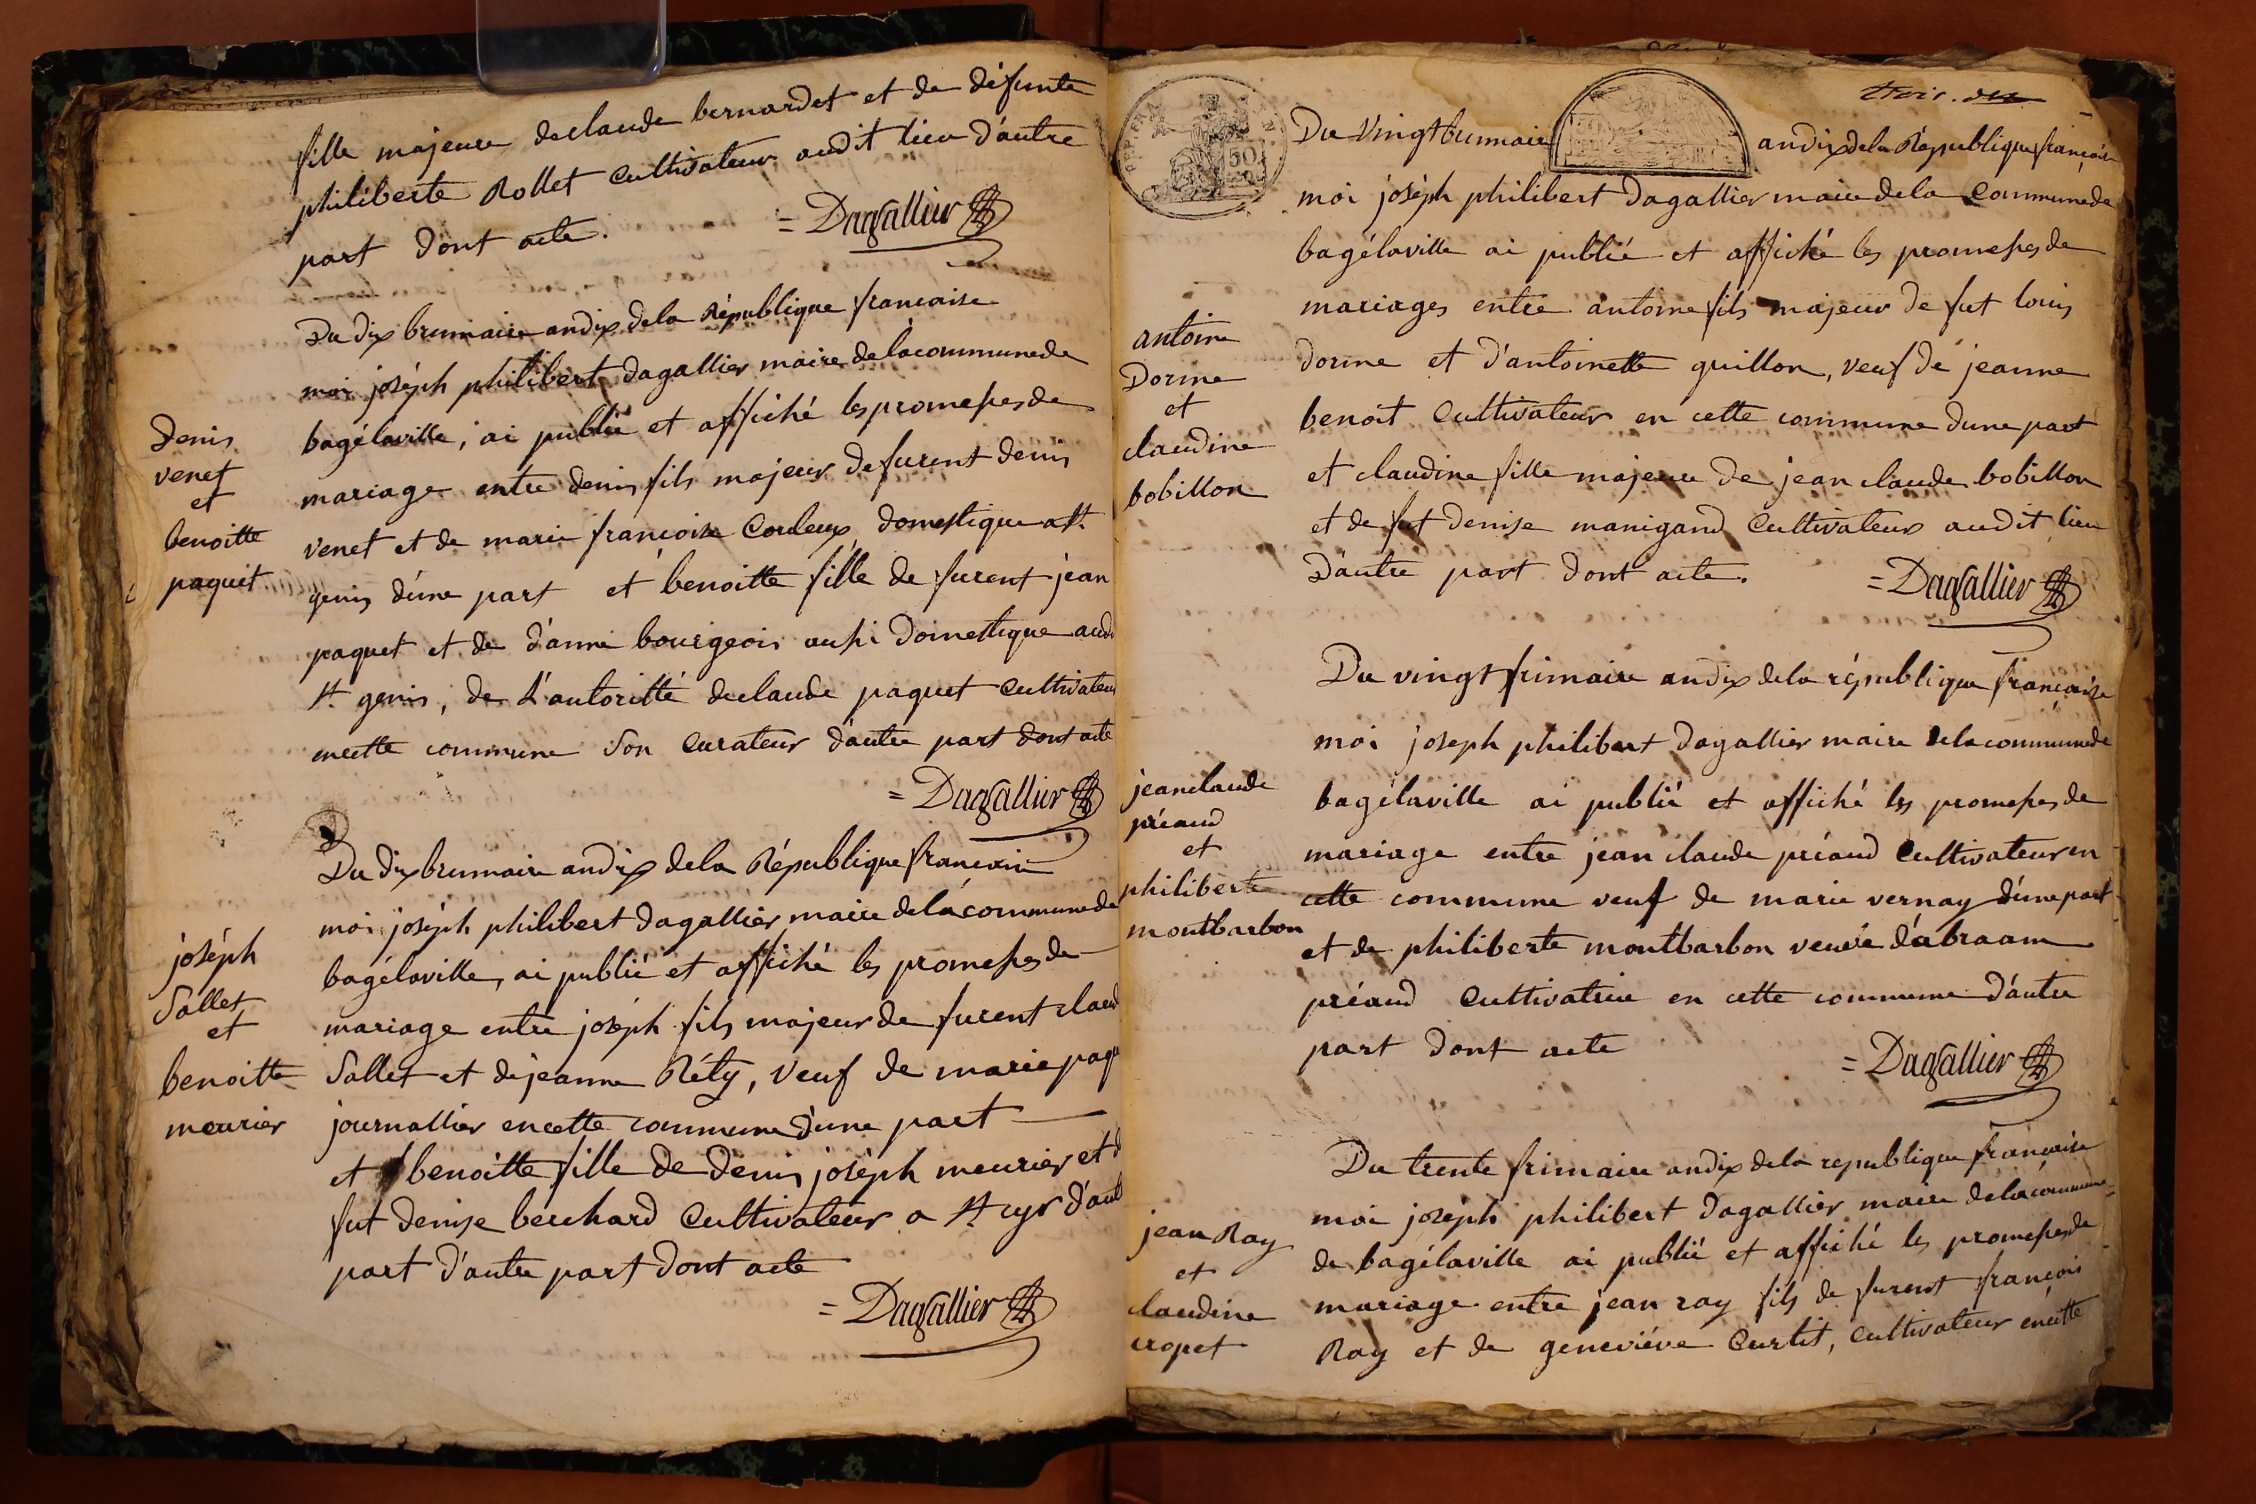 fille majeure declaude bernardet et de défunte
philiberte Rollet cultivateur audit lieu d'autre
part dont acte.
= Dagallier
Du dix brumaire andix dela République francaise
moi joséph philibert dagallier maire delacommunede
bagélaville, ai publié et affiché les promesses de
mariage entre denis fils majeur defurent denis
venet et de marie francoise Cordeux, domestique a st.
genis d'une part et benoitte fille de furent jean
paquet et de d'anne bourgeois aussi domestique aud
st. genis, de L'autoritté declaude paquet cultivateur
encette commune son curateur d'autre part dont acte
= Dagallier
Denis
venet
et
benoitte
paquet
Du dix brumaire andix dela République francaise
moi joséph philibert dagallier maire delacommunede
bagélaville, ai publié et affiché les promesses de
mariage entre joséph fils majeur de furent claud
Sallet et dejeanne Réty, veuf de marie paqu
journallier encette commune d'une part
et benoitte fille de denis joséph meurier et d
fut denise berchard cultivateur a st. cyr d'aut
part d'autre part dont acte
= Dagallier
joséph
Sallet
et
benoitte
meurier
trois.
Du vingt brumaire andix dela République francaise
moi joséph philibert dagallier maire dela communede
bagélaville ai publié et affiché les promesses de
mariages entre antoine fils majeur de fut louis
dorine et d'antoinette guillon, veuf de jeanne
benoit cultivateur en cette commune dune part
et claudine fille majeure de jean claude bobillon
et de fut denise manigand cultivateur audit lieu
D'autre part dont acte.
= Dagallier
antoine
Dorine
et
claudine
bobillon
Du vingt frimaire andix dela république française
moi joseph philibert dagallier maire delacommunede
bagélaville ai publié et affiché les promesses de
mariage entre jean claude préaud cultivateur en
cette commune veuf de marie vernay d'une part
et de philiberte montbarbon veuve d'abraam
préaud cultivatrice en cette commune d'autre
part dont acte
= Dagallier
jeanclaude
préaud
et
philiberte
montbarbon
Du trente frimaire andix dela republique francaise
moi joséph philibert dagallier maire delacommune
de bagélaville ai publié et affiché les promesses de
mariage entre jean ray fils de furent françois
Ray et de geneviéve Curtit, cultivateur encette
jean Ray
et
claudine
cropet